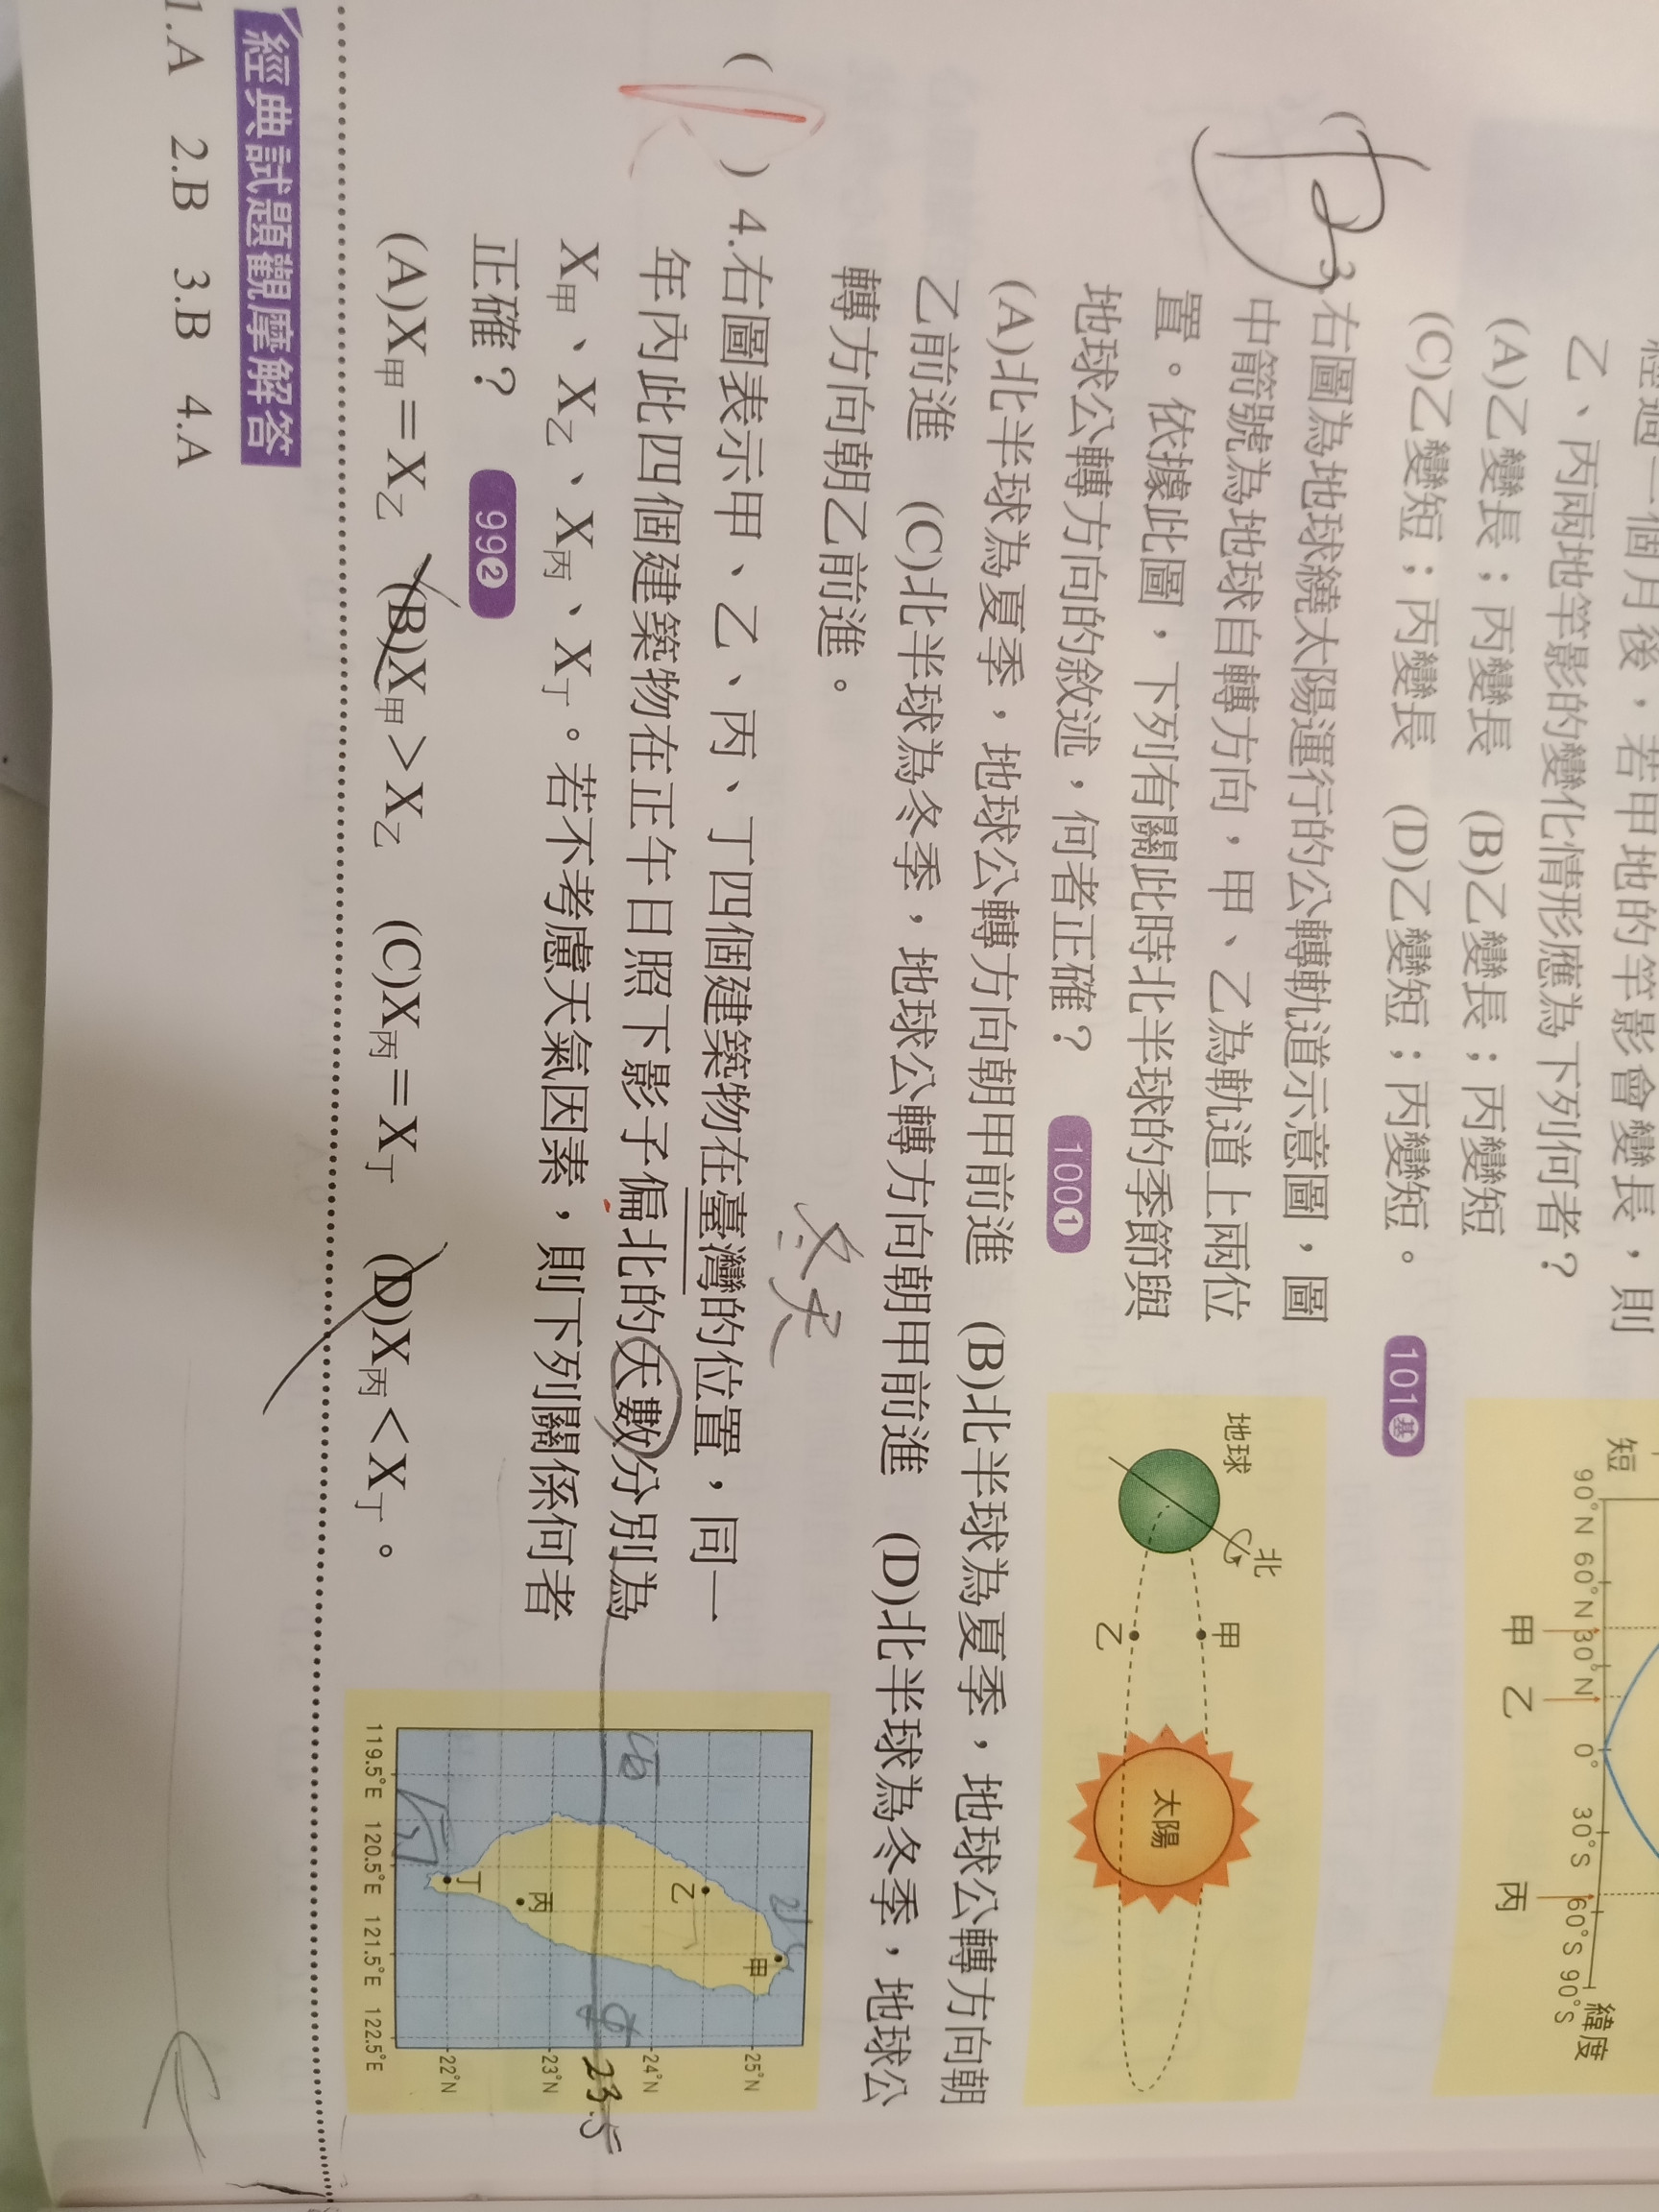 經過一個月後，若甲地的竿影會變長，則
乙、丙兩地竿影的變化情形應為下列何者？
(A)乙變長；丙變長 (B)乙變長；丙變短
(C)乙變短；丙變長 (D)乙變短；丙變短。 101基
短
90°N 60°N 30°N 0° 30°S 60°S 90°S 緯度
甲 乙 丙
3.右圖為地球繞太陽運行的公轉軌道示意圖，圖
中箭號為地球自轉方向，甲、乙為軌道上兩位
置。依據此圖，下列有關此時北半球的季節與
地球公轉方向的敘述，何者正確？ 100①
(A)北半球為夏季，地球公轉方向朝甲前進 (B)北半球為夏季，地球公轉方向朝
乙前進 (C)北半球為冬季，地球公轉方向朝甲前進 (D)北半球為冬季，地球公
轉方向朝乙前進。
地球
北
甲
乙
太陽
( ) 4.右圖表示甲、乙、丙、丁四個建築物在臺灣的位置，同一
年內此四個建築物在正午日照下影子偏北的天數分別為
X甲、X乙、X丙、X丁。若不考慮天氣因素，則下列關係何者
正確？ 99②
(A)X甲＝X乙 (B)X甲＞X乙 (C)X丙＝X丁 (D)X丙＜X丁。
甲
乙
丙
丁
25°N
24°N
23.5
23°N
22°N
119.5°E 120.5°E 121.5°E 122.5°E
經典試題觀摩解答
1.A 2.B 3.B 4.A